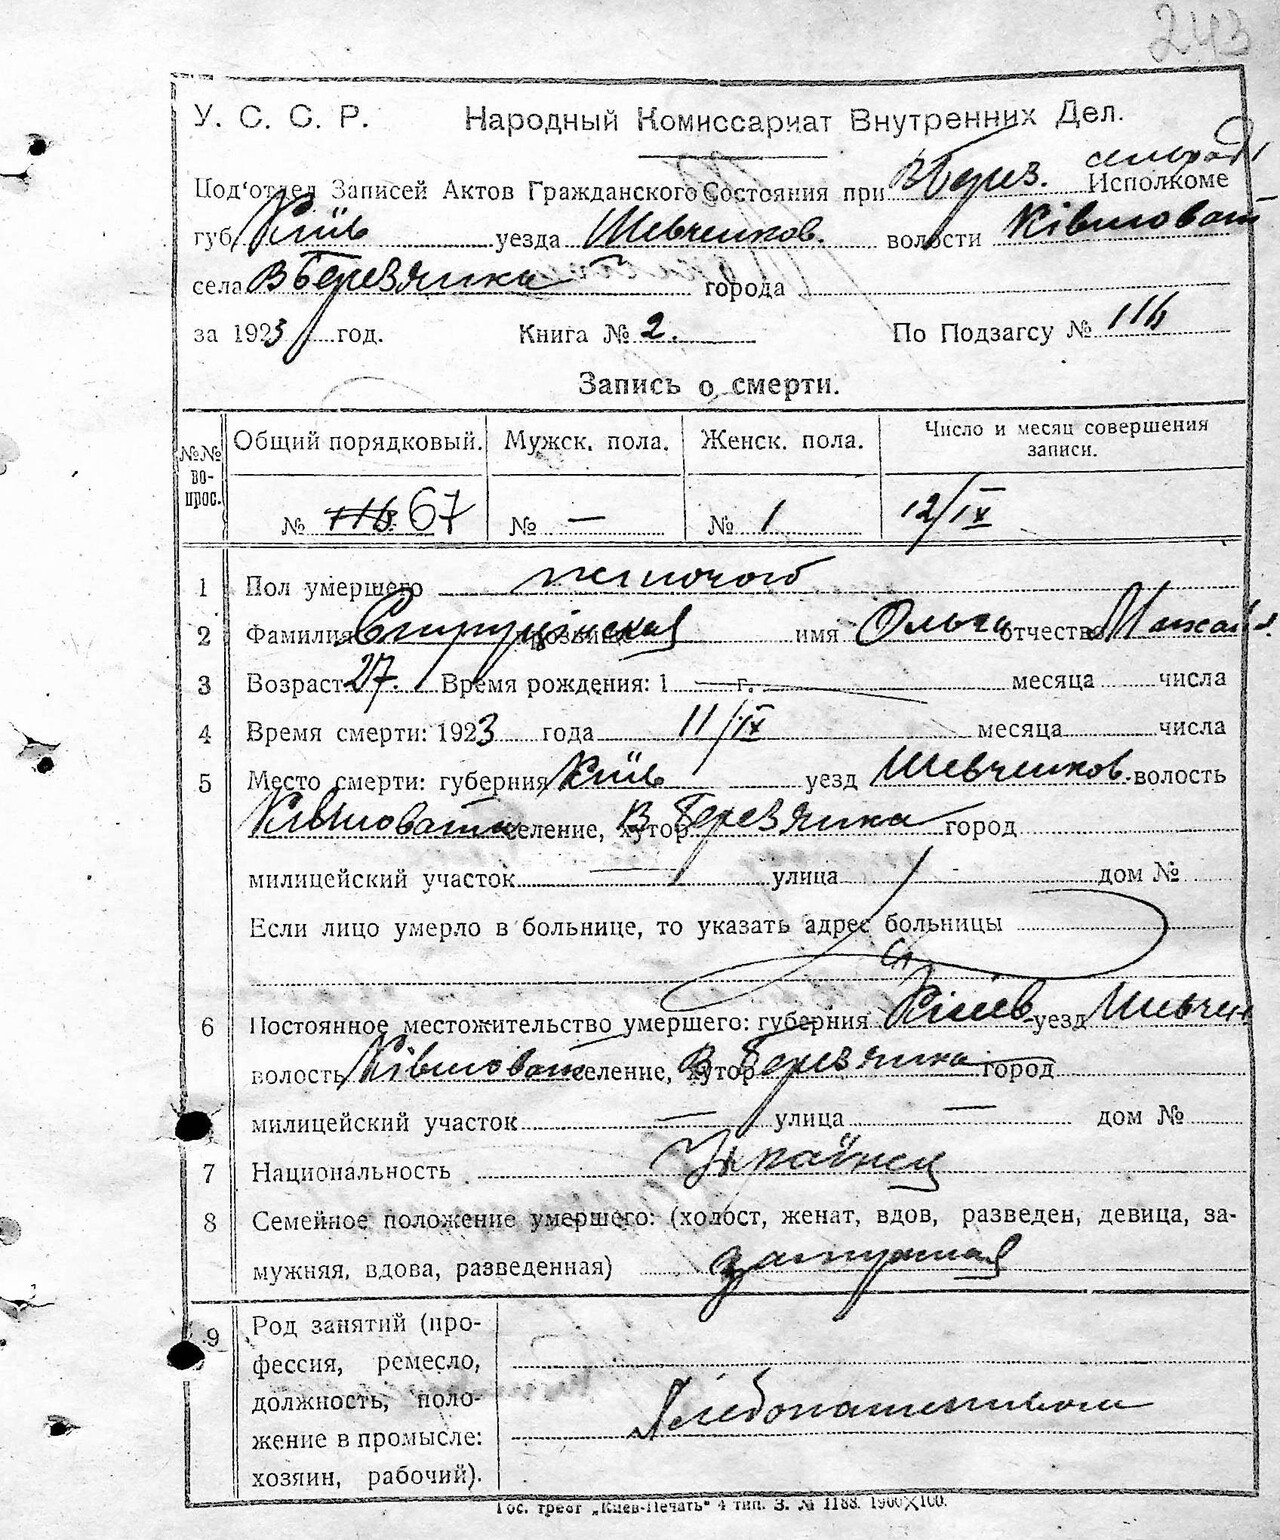 243
У. С. С. Р. Народный Комиссариат Внутренних Дел.
Под'отдел Записей Актов Гражданского Состояния при В Берез. сельрада Исполкоме
губ. Київ уезда Шевченков. волости Ківшоват
села В Березянка города
за 1923 год. Книга № 2. По Подзагсу №
Запись о смерти.
№№ вопрос. Общий порядковый. Мужск. пола. Женск. пола. Число и месяц совершения записи.
№ 116 67 № — № 1 12/IV
1 Пол умершего жіночої
2 Фамилия прозвище имя Ольга отчество
3 Возраст 27. Время рождения: 1 — г. месяца числа
4 Время смерти: 1923 года 11/IV месяца числа
5 Место смерти: губерния Київ уезд Шевченков. волость
Ківшовата селение, хутор В Березянка город
милицейский участок — улица — дом №
Если лицо умерло в больнице, то указать адрес больницы
6 Постоянное местожительство умершего: губерния Київ уезд Шевчен
волость Ківшоват селение, хутор В Березянка город
милицейский участок — улица — дом №
7 Национальность
8 Семейное положение умершего: (холост, женат, вдов, разведен, девица, за-
мужняя, вдова, разведенная) замужная
9 Род занятий (про-
фессия, ремесло,
должность, поло-
жение в промысле:
хозяин, рабочий).
Хлебопашество
Гос. трест „Киев-Печать" 4 тип. З. № 1188. 1900×100.